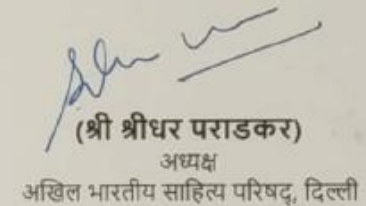 (श्री श्रीधर पराडकर)
अध्यक्ष
अखिल भारतीय साहित्य परिषद्, दिल्ली